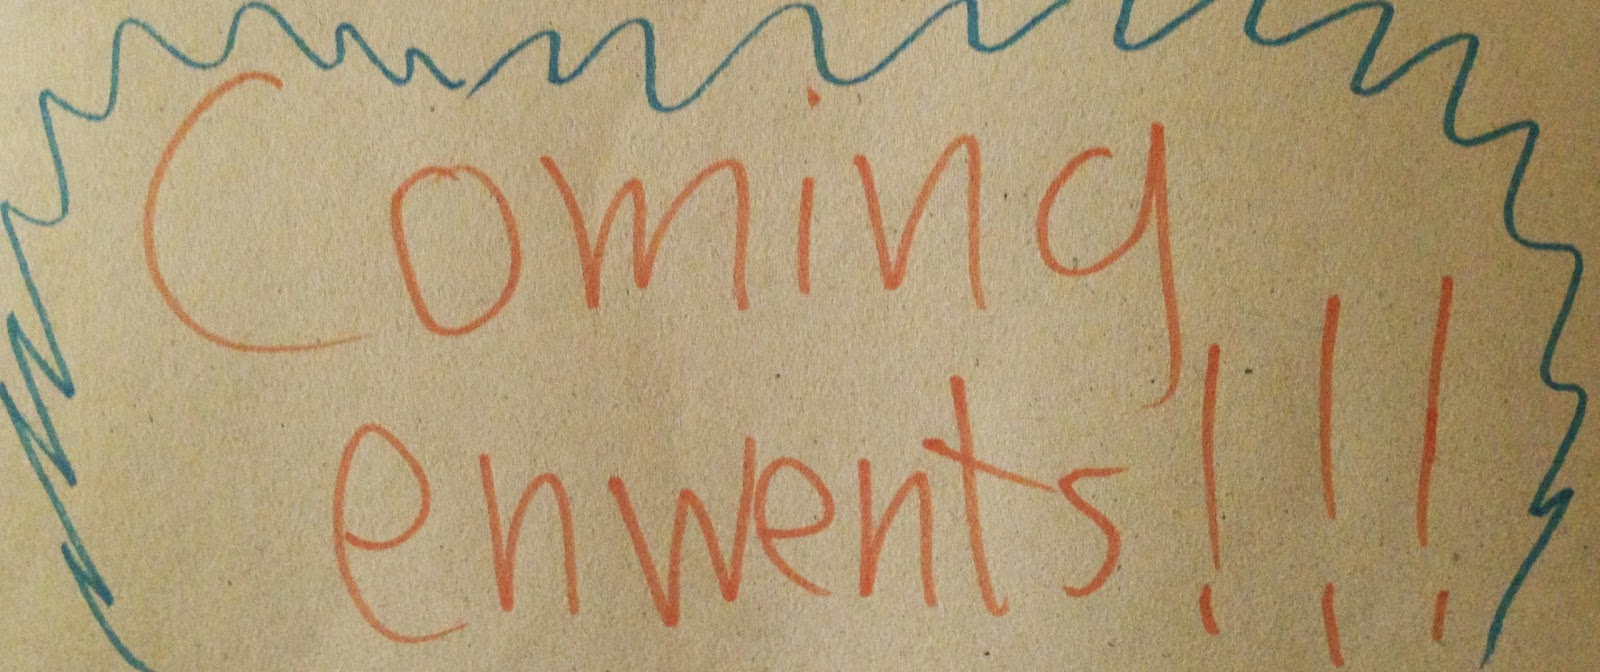 Coming
enwents!!!